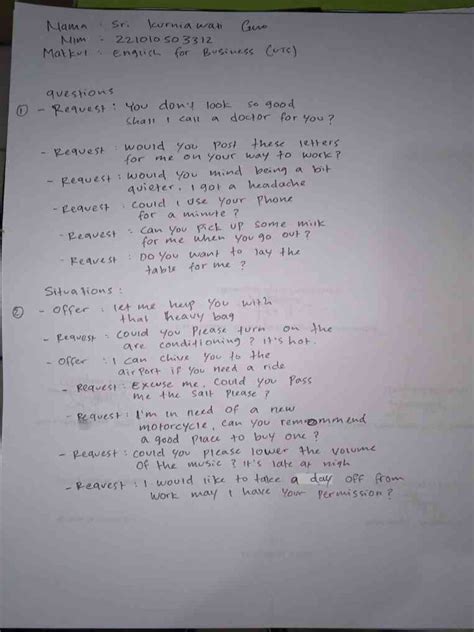 Nama : Sri Kurniawati Guo
Nim : 221010503312
Matkul : English for Business (UTS)
questions
① - Request : You don't look so good
shall I call a doctor for you?
- Request : Would you post these letters
for me on your way to work?
- Request : Would you mind being a bit
quieter, I got a headache
- Request : Could I use your phone
for a minute?
- Request : Can you pick up some milk
for me when you go out?
- Request : Do you want to lay the
table for me?
Situations :
② - Offer : let me help you with
that heavy bag
- Request : Could you please turn on the
are conditioning? It's hot.
- Offer : I can chive you to the
airport if you need a ride
- Request : Excuse me, could you pass
me the salt please?
- Request : I'm in need of a new
motorcycle, can you remommend
a good place to buy one?
- Request : could you please lower the volume
of the music? It's late at nigh
- Request : I would like to take a day off from
work may I have your permission?